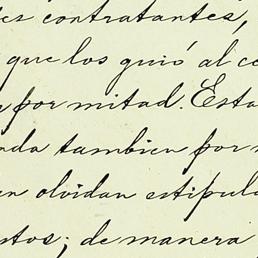 es contratantes,
que los guió al ce
por mitad. Esta
nda tambien por
en olvidan estipula
stos; de manera